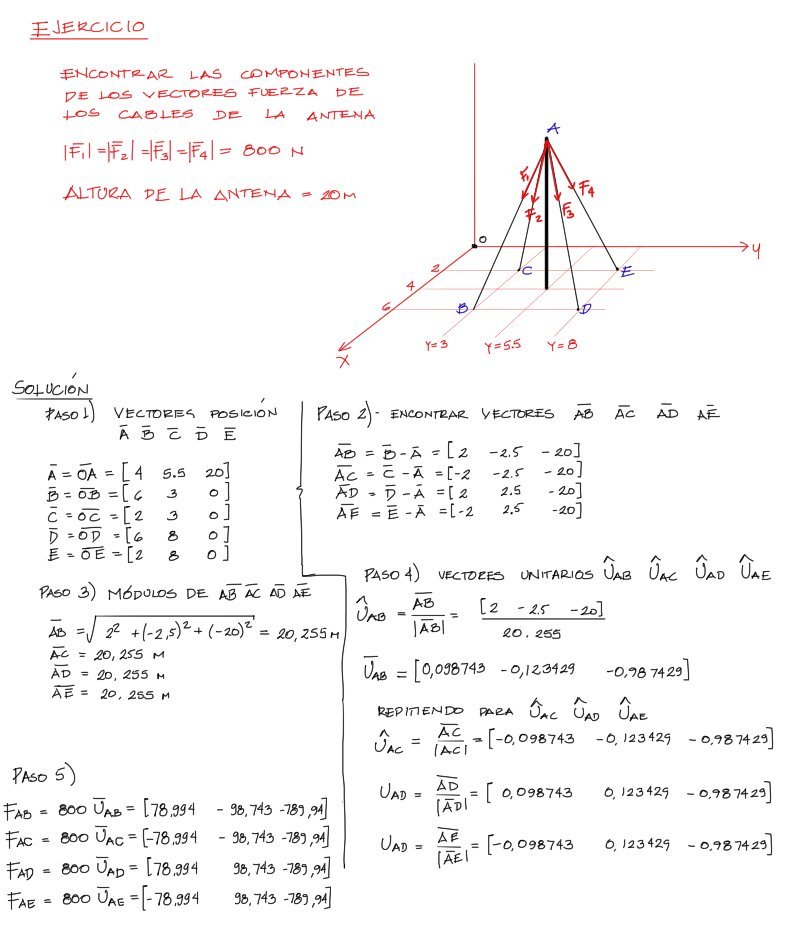 EJERCICIO
ENCONTRAR LAS COMPONENTES
DE LOS VECTORES FUERZA DE
LOS CABLES DE LA ANTENA
|F̄₁| = |F̄₂| = |F̄₃| = |F̄₄| = 800 N
ALTURA DE LA ANTENA = 20M
A
F₁
F₂
F₃
F₄
O
Y
2
C
E
4
6
B
D
X
Y=3
Y=5.5
Y=8
SOLUCIÓN
PASO 1) VECTORES POSICIÓN
Ā B̄ C̄ D̄ Ē
Ā = OA = [ 4 5.5 20]
B̄ = OB = [ 6 3 0 ]
C̄ = OC = [ 2 3 0 ]
D̄ = OD = [ 6 8 0 ]
E = OE = [ 2 8 0 ]
PASO 2)- ENCONTRAR VECTORES AB AC AD AE
AB = B̄ - Ā = [ 2 -2.5 -20]
AC = C̄ - Ā = [-2 -2.5 -20]
AD = D̄ - Ā = [ 2 2.5 -20]
AE = Ē - Ā = [-2 2.5 -20]
PASO 3) MÓDULOS DE AB AC AD AE
AB = √ 2² + (-2,5)² + (-20)² = 20,255 M
AC = 20,255 M
AD = 20,255 M
AE = 20,255 M
PASO 4) VECTORES UNITARIOS Û_AB Û_AC Û_AD Û_AE
Û_AB = AB / |AB| = [2 -2.5 -20] / 20.255
Ū_AB = [0,098743 -0,123429 -0,987429]
REPITIENDO PARA Û_AC Û_AD Û_AE
Û_AC = AC / |AC| = [-0,098743 -0,123429 -0,987429]
U_AD = AD / |AD| = [ 0,098743 0,123429 -0,987429]
U_AD = AE / |AE| = [-0,098743 0,123429 -0,987429]
PASO 5)
F_AB = 800 Ū_AB = [78,994 -98,743 -789,94]
F_AC = 800 Ū_AC = [-78,994 -98,743 -789,94]
F_AD = 800 Ū_AD = [78,994 98,743 -789,94]
F_AE = 800 Ū_AE = [-78,994 98,743 -789,94]